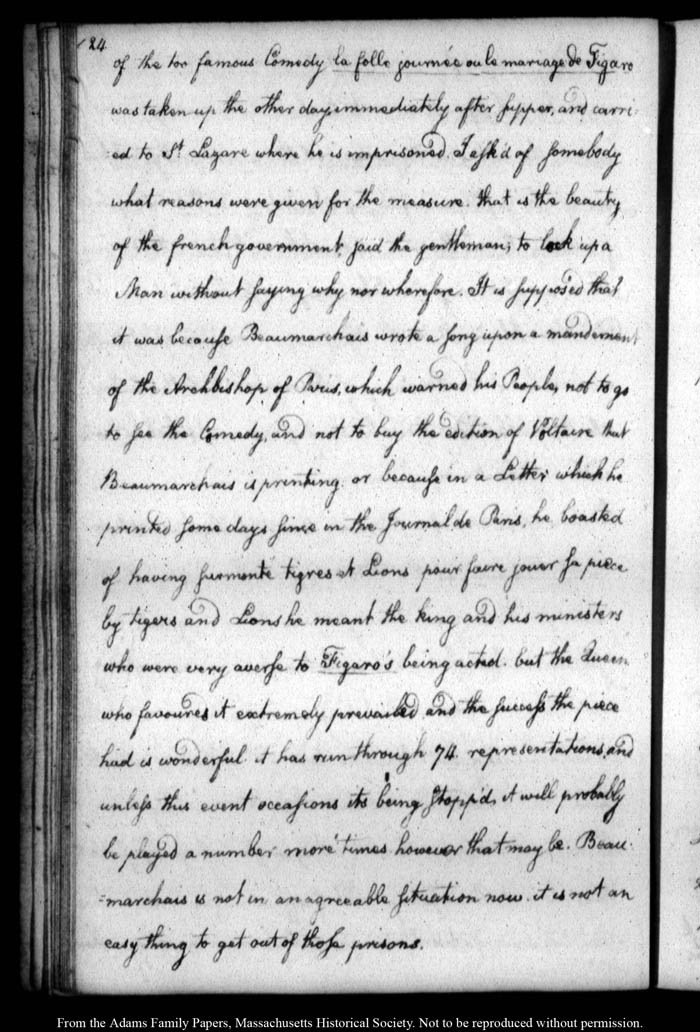 124
of the too famous Comedy la folle journée ou le mariage de Figaro
was taken up the other day, immediately after supper, and carri-
-ed to St. Lazare where he is imprisoned. I ask'd of somebody
what reasons were given for the measure. that is the beauty,
of the french government, said the gentleman; to lock up a
Man without saying why nor wherefore. It is suppos'ed that
it was because Beaumarchais wrote a song upon a mandement
of the Archbishop of Paris, which warned his People, not to go
to see the Comedy, and not to buy the edition of Voltaire that
Beaumarchais is printing. or because in a Letter which he
printed some days since in the Journal de Paris, he boasted
of having surmonté tigres et Lions pour faire jouer sa piece
by tigers and Lions he meant the king and his ministers
who were very averse to Figaro's being acted. but the Queen
who favoures it extremely prevailed and the success the piece
had is wonderful. it has run through 74. representations, and
unless this event occasions its being stopp'd, it will probably
be played a number more times however that may be. Beau-
=marchais is not in an agreeable situation now. it is not an
easy thing to get out of those prisons.
From the Adams Family Papers, Massachusetts Historical Society. Not to be reproduced without permission.